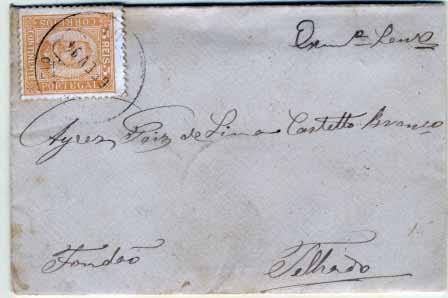 CORREIOS
REIS
CONTINENTE
PORTUGAL
Exmo Senr
Ayres Paiz de Lima Castello Branco
Fundão
Telhado